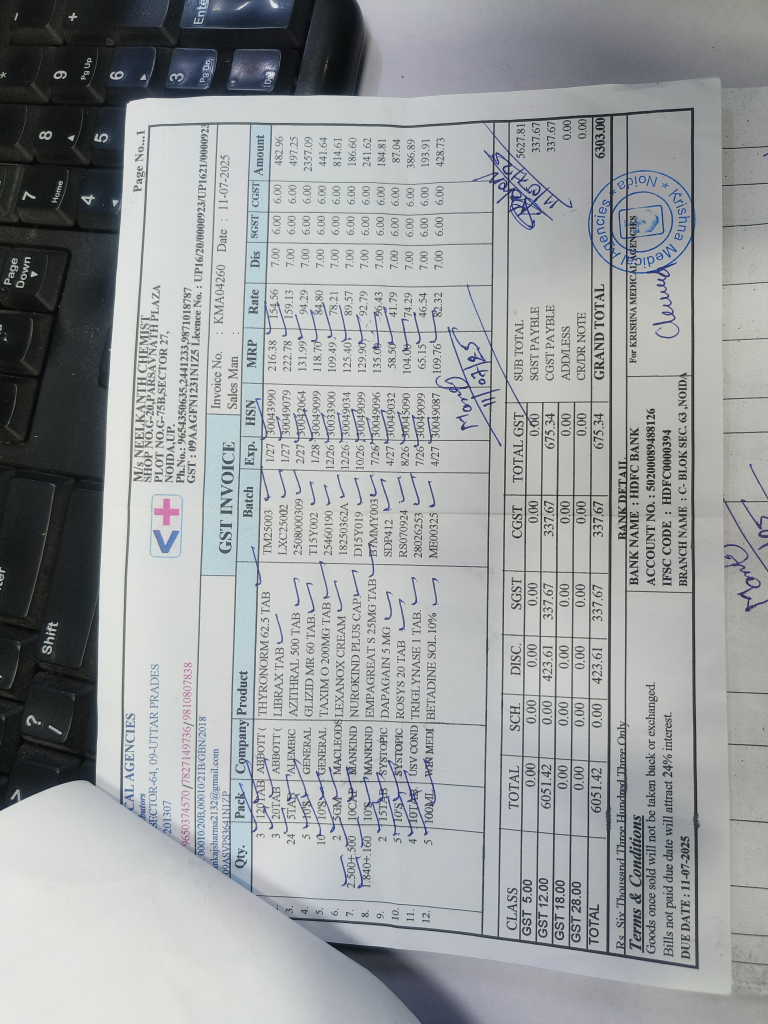 Page No...1
CAL AGENCIES
SECTOR-64, 09-UTTAR PRADES
201307
9650374570/7827149736/9810807838
00010/20B,00010/21B/GBN/2018
ankajsharma2132@gmail.com
M/s NEELKANTH CHEMIST
SHOP NO.G-20,PARSAVNATH PLAZA
PLOT NO.G-75B,SECTOR 27,
NOIDA,UP.
Ph.No.: 9654350635,2441233,9871018787
GST : 09AAGFN1231N1Z5 Licence No. : UP16/20/0000923/UP1621/0000923
GST INVOICE
Invoice No. : KMA04260 Date : 11-07-2025
Sales Man :
Qty. Pack Company Product Batch Exp. HSN MRP Rate Dis SGST CGST Amount
3 120TAB ABBOTT ( THYRONORM 62.5 TAB TM25003 1/27 30043990 216.38 154.56 7.00 6.00 6.00 482.96
3 20TAB ABBOTT ( LIBRAX TAB LXC25002 1/27 30049079 222.78 159.13 7.00 6.00 6.00 497.25
3. 24 5TAB ALEMBIC AZITHRAL 500 TAB 2508000309 2/27 30042064 131.99 94.29 7.00 6.00 6.00 2357.09
4. 5 10'S GENERAL GLIZID MR 60 TAB. T15Y002 1/28 30049099 118.70 84.80 7.00 6.00 6.00 441.64
5. 10 10'S GENERAL TAXIM O 200MG TAB 25460190 12/26 30033900 109.40 78.21 7.00 6.00 6.00 814.61
6. 2 5GM MACLEODS LEXANOX CREAM 18250362A 12/26 30049034 125.40 89.57 7.00 6.00 6.00 186.60
7. 2.500+.500 10CAP MANKIND NUROKIND PLUS CAP D15Y019 10/26 30049099 129.90 92.79 7.00 6.00 6.00 241.62
8. 1.840+.160 10'S MANKIND EMPAGREAT S 25MG TAB B7MMY003 7/26 30049096 135.00 96.43 7.00 6.00 6.00 184.81
9. 2 15TAB SYSTOPIC DAPAGAIN 5 MG SDF412 4/27 30049032 58.50 41.79 7.00 6.00 6.00 87.04
10. 5 10'S SYSTOPIC ROSYS 20 TAB RS070924 8/26 30045090 104.00 74.29 7.00 6.00 6.00 386.89
11. 4 10TAB USV COND TRIGLYNASE 1 TAB. 28026253 7/26 30049099 65.15 46.54 7.00 6.00 6.00 193.91
12. 5 100ML WIN MEDI BETADINE SOL.10% ME00325 4/27 30049087 109.76 82.32 7.00 6.00 6.00 428.73
11/07/25
CLASS TOTAL SCH. DISC. SGST CGST TOTAL GST
GST 5.00 0.00 0.00 0.00 0.00 0.00 0.00
GST 12.00 6051.42 0.00 423.61 337.67 337.67 675.34
GST 18.00 0.00 0.00 0.00 0.00 0.00 0.00
GST 28.00 0.00 0.00 0.00 0.00 0.00 0.00
TOTAL 6051.42 0.00 423.61 337.67 337.67 675.34
SUB TOTAL 5627.81
SGST PAYBLE 337.67
CGST PAYBLE 337.67
ADD/LESS 0.00
CR/DR NOTE 0.00
GRAND TOTAL 6303.00
Rs. Six Thousand Three Hundred Three Only
Terms & Conditions
Goods once sold will not be taken back or exchanged.
Bills not paid due date will attract 24% interest.
DUE DATE : 11-07-2025
BANK DETAIL
BANK NAME : HDFC BANK
ACCOUNT NO. : 50200089488126
IFSC CODE : HDFC0000394
BRANCH NAME : C- BLOK SEC. 63 ,NOIDA
For KRISHNA MEDICAL AGENCIES
Krishna Medical Agencies * Noida *
Page Down
Shift
Home
7
8
9
PgUp
4
5
6
3
Pg Dn
Enter